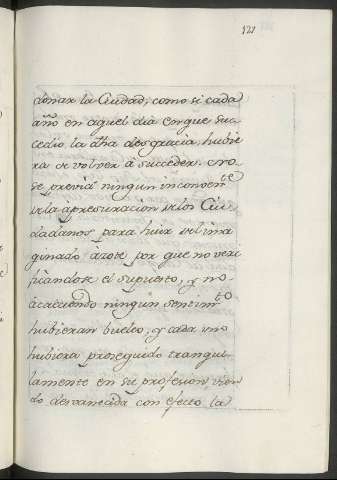 121
donar la Ciudad, como si cada
año en aquel dia en que suc-
cedió la dha desgracia, hubie
ra de volver á succeder: no
se previa ningun inconven.te
en la apresuracion de los Ciu-
dadanos para huir del ima
ginado azote, por que no veri
ficandose el supuesto, y no
acaeciendo ningun sentim.to
hubieran buelto, y cada uno
hubiera proseguido tranqui-
lamente en su profesion, vien
do desvanecida con efecto la